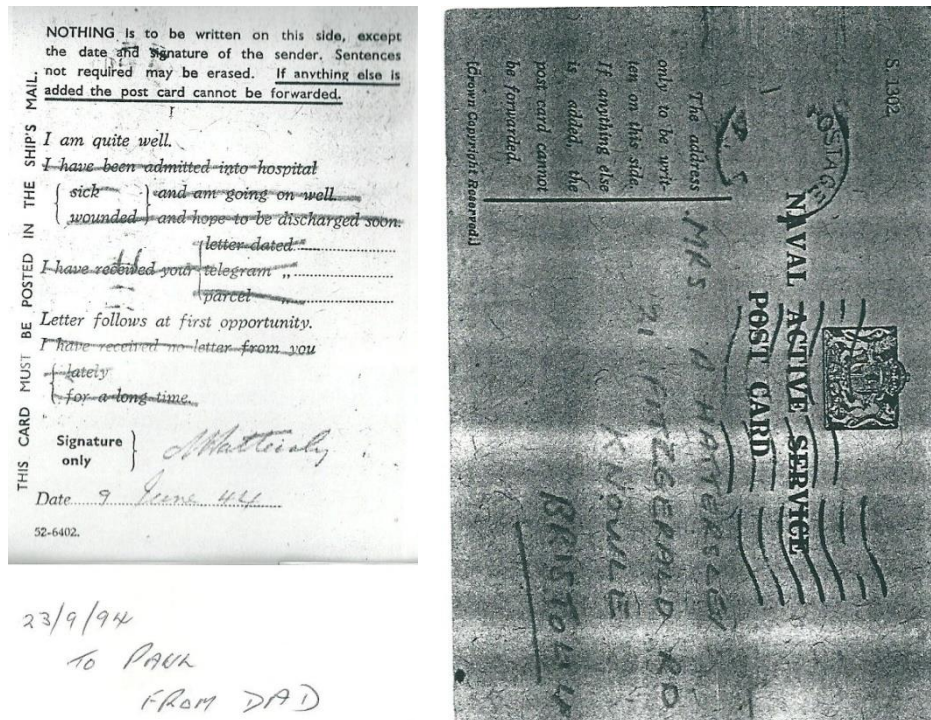 NOTHING is to be written on this side, except
the date and signature of the sender. Sentences
not required may be erased. If anything else is
added the post card cannot be forwarded.
THIS CARD MUST BE POSTED IN THE SHIP'S MAIL.
I am quite well.
I have been admitted into hospital
{ sick } and am going on well.
{ wounded } and hope to be discharged soon.
{ letter dated
I have received your { telegram ,,
{ parcel ,,
Letter follows at first opportunity.
I have received no letter from you
{ lately
{ for a long time.
Signature
only }
Date 9 June 44
52-6402.
23/9/94
TO PAUL
FROM DAD
S. 1302
POSTAGE
NAVAL ACTIVE SERVICE
POST CARD
The address
only to be writ-
ten on this side.
If anything else
is added, the
post card cannot
be forwarded.
(Crown Copyright Reserved.)
MRS HATTERSLEY
21 FITZGERALD RD
KNOWLE
BRISTOL 4